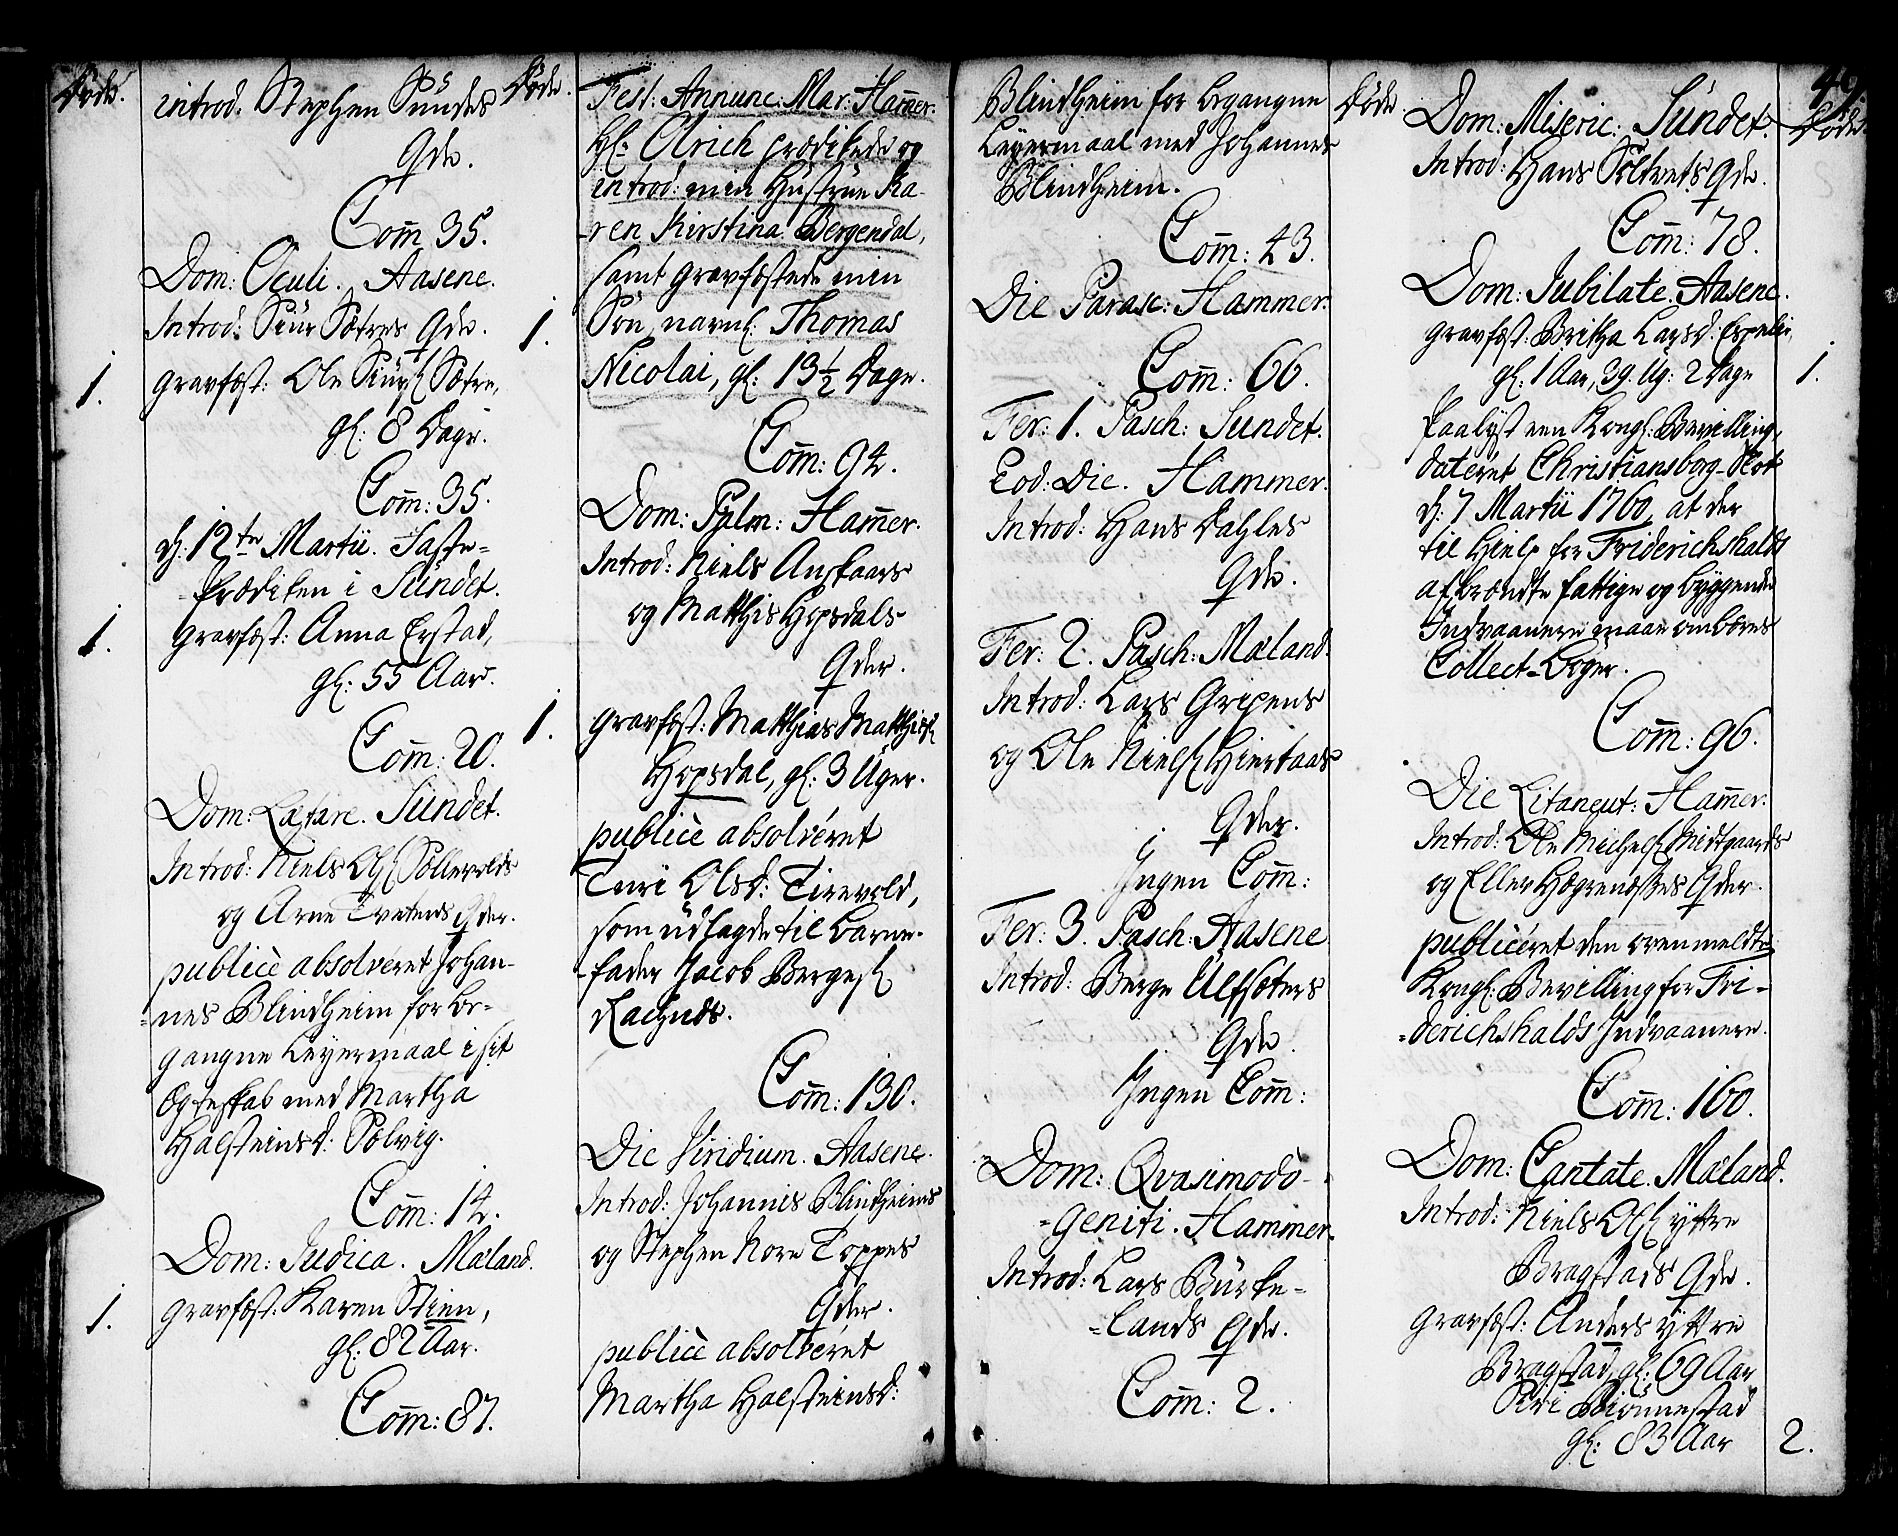 Døde.
introd. Stephen Sundes
Qde.
Com̅ 35.
Dom: Oculi. Aasene.
Introd: Siur Sætres Qde.
1.
gravfæst: Ole Siurs. Sætre,
gl: 8 Dage.
Com̅: 35.
d. 12te Martii. Faste-
-Prædiken i Sundet.
1.
gravfæst: Anna Erstad,
gl: 55 Aar.
Com̅: 20.
Dom: Lætare. Sundet.
Introd: Niels Ols. Sollevolds
og Arne Tvetens Qder.
publicè absolveret Johan-
-nes Blindheim for be-
gangne Leyermaal i sit
Egteskab med Martha
Halsteinsd: Solvig.
Com̅: 14.
Dom: Judica. Mæland.
1.
gravfæst: Karen Stien,
gl: 82 Aar.
Com̅: 87.
Døde.
Fest: Annunc: Mar: Ham̅er.
Hr: Olrich prædikede og
introd: min Hustrue Ka-
-ren Kirstina Bergendal,
samt gravfæstede min
1.
Søn, navnl: Thomas
Nicolai, gl: 13½ Dage.
Com̅: 94.
Dom: Palm: Ham̅er.
Introd: Niels Anskaars
og Matthis Hopsdals
Qder.
1.
gravfæst: Matthias Matthiss.
Hopsdal, gl: 3 Uger.
publicè absolvéret
Turi Olsd: Tirevold,
som udlagde til Barne-
-fader Jacob Berges.
Com̅: 130.
Die Viridium. Aasene.
Introd: Johannis Blindheims
og Stephen Nore Toppes
Qder.
publicè absolvéret
Martha Halsteinsd:
Blindheim for begangne
Leyermaal med Johannes
Blindheim.
Com̅: 43.
Die Parasc: Hammer.
Com̅: 66.
Fer: 1. Pasch: Sundet.
Eod: Die. Hammer.
Introd: Hans Dahles
Qde.
Fer: 2. Pasch: Mæland.
Introd: Lars Gripens
og Ole Niels. Hiertaas
Qder.
Ingen Com̅:
Fer: 3. Pasch: Aasene
Introd: Berge Ulfsæters
Qde.
Ingen Com̅:
Dom: Qvasimodo-
-geniti. Hammer.
Introd: Lars Burke-
-lands Qde.
Com̅: 2.
Døde.
49
Døde.
Dom: Miseric: Sundet.
Introd: Hans Soltvets Qde.
Com̅: 78.
Dom: Jubilate. Aasene.
gravfæst: Britha Larsd: Espelie,
gl: 1 Aar, 39. Ug: 2 Dage
1.
Paalyst een Kongl: Bevilling,
dateret Christiansborg-Slot
d: 7 Martii 1760, at der
til Hielp for Friderichshalds
afbrændte fattige og byggende
Indvaanere maae ombæres
Collect-Bøger.
Com̅: 96.
Die Litaneut: Ham̅er.
Introd: Ole Michels. Midtgaards
og Eller Hægrenæsses Qder.
publicéret den ovenmeldte
Kongl: Bevilling for Fri-
-derichshalds Indvaanere.
Com̅: 160.
Dom: Cantate. Mæland.
Introd: Niels Ols. yttre
Bragstads Qde.
gravfæst: Anders yttre
Bragstad, gl: 69 Aar
Siri Biönnestad
gl: 83 Aar
2.